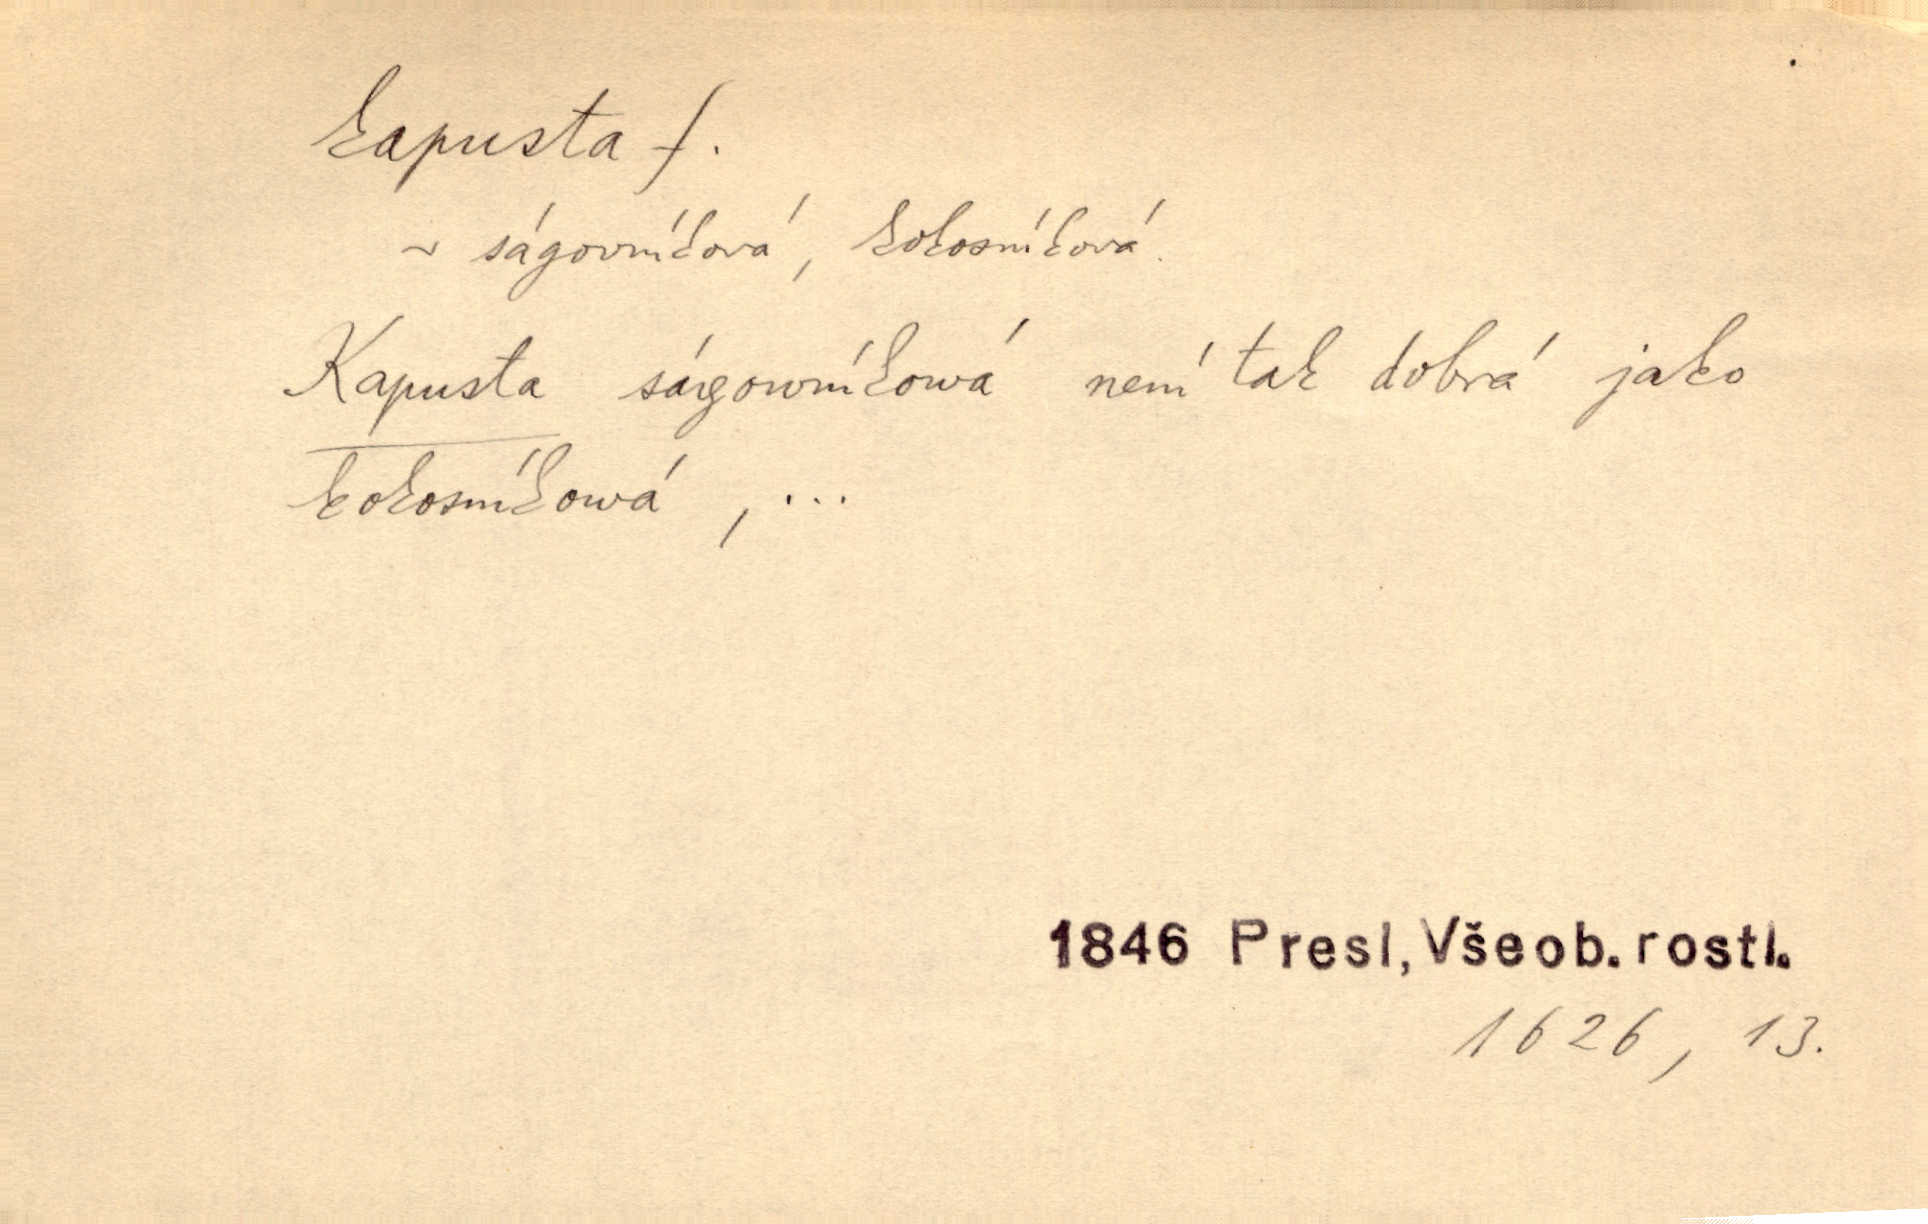 kapusta f.
~ ságovníková, kokosníková.
Kapusta ságowníkowá není tak dobrá jako
kokosníkowá, ...
1846 Presl, Všeob. rostl.
1626, 13.